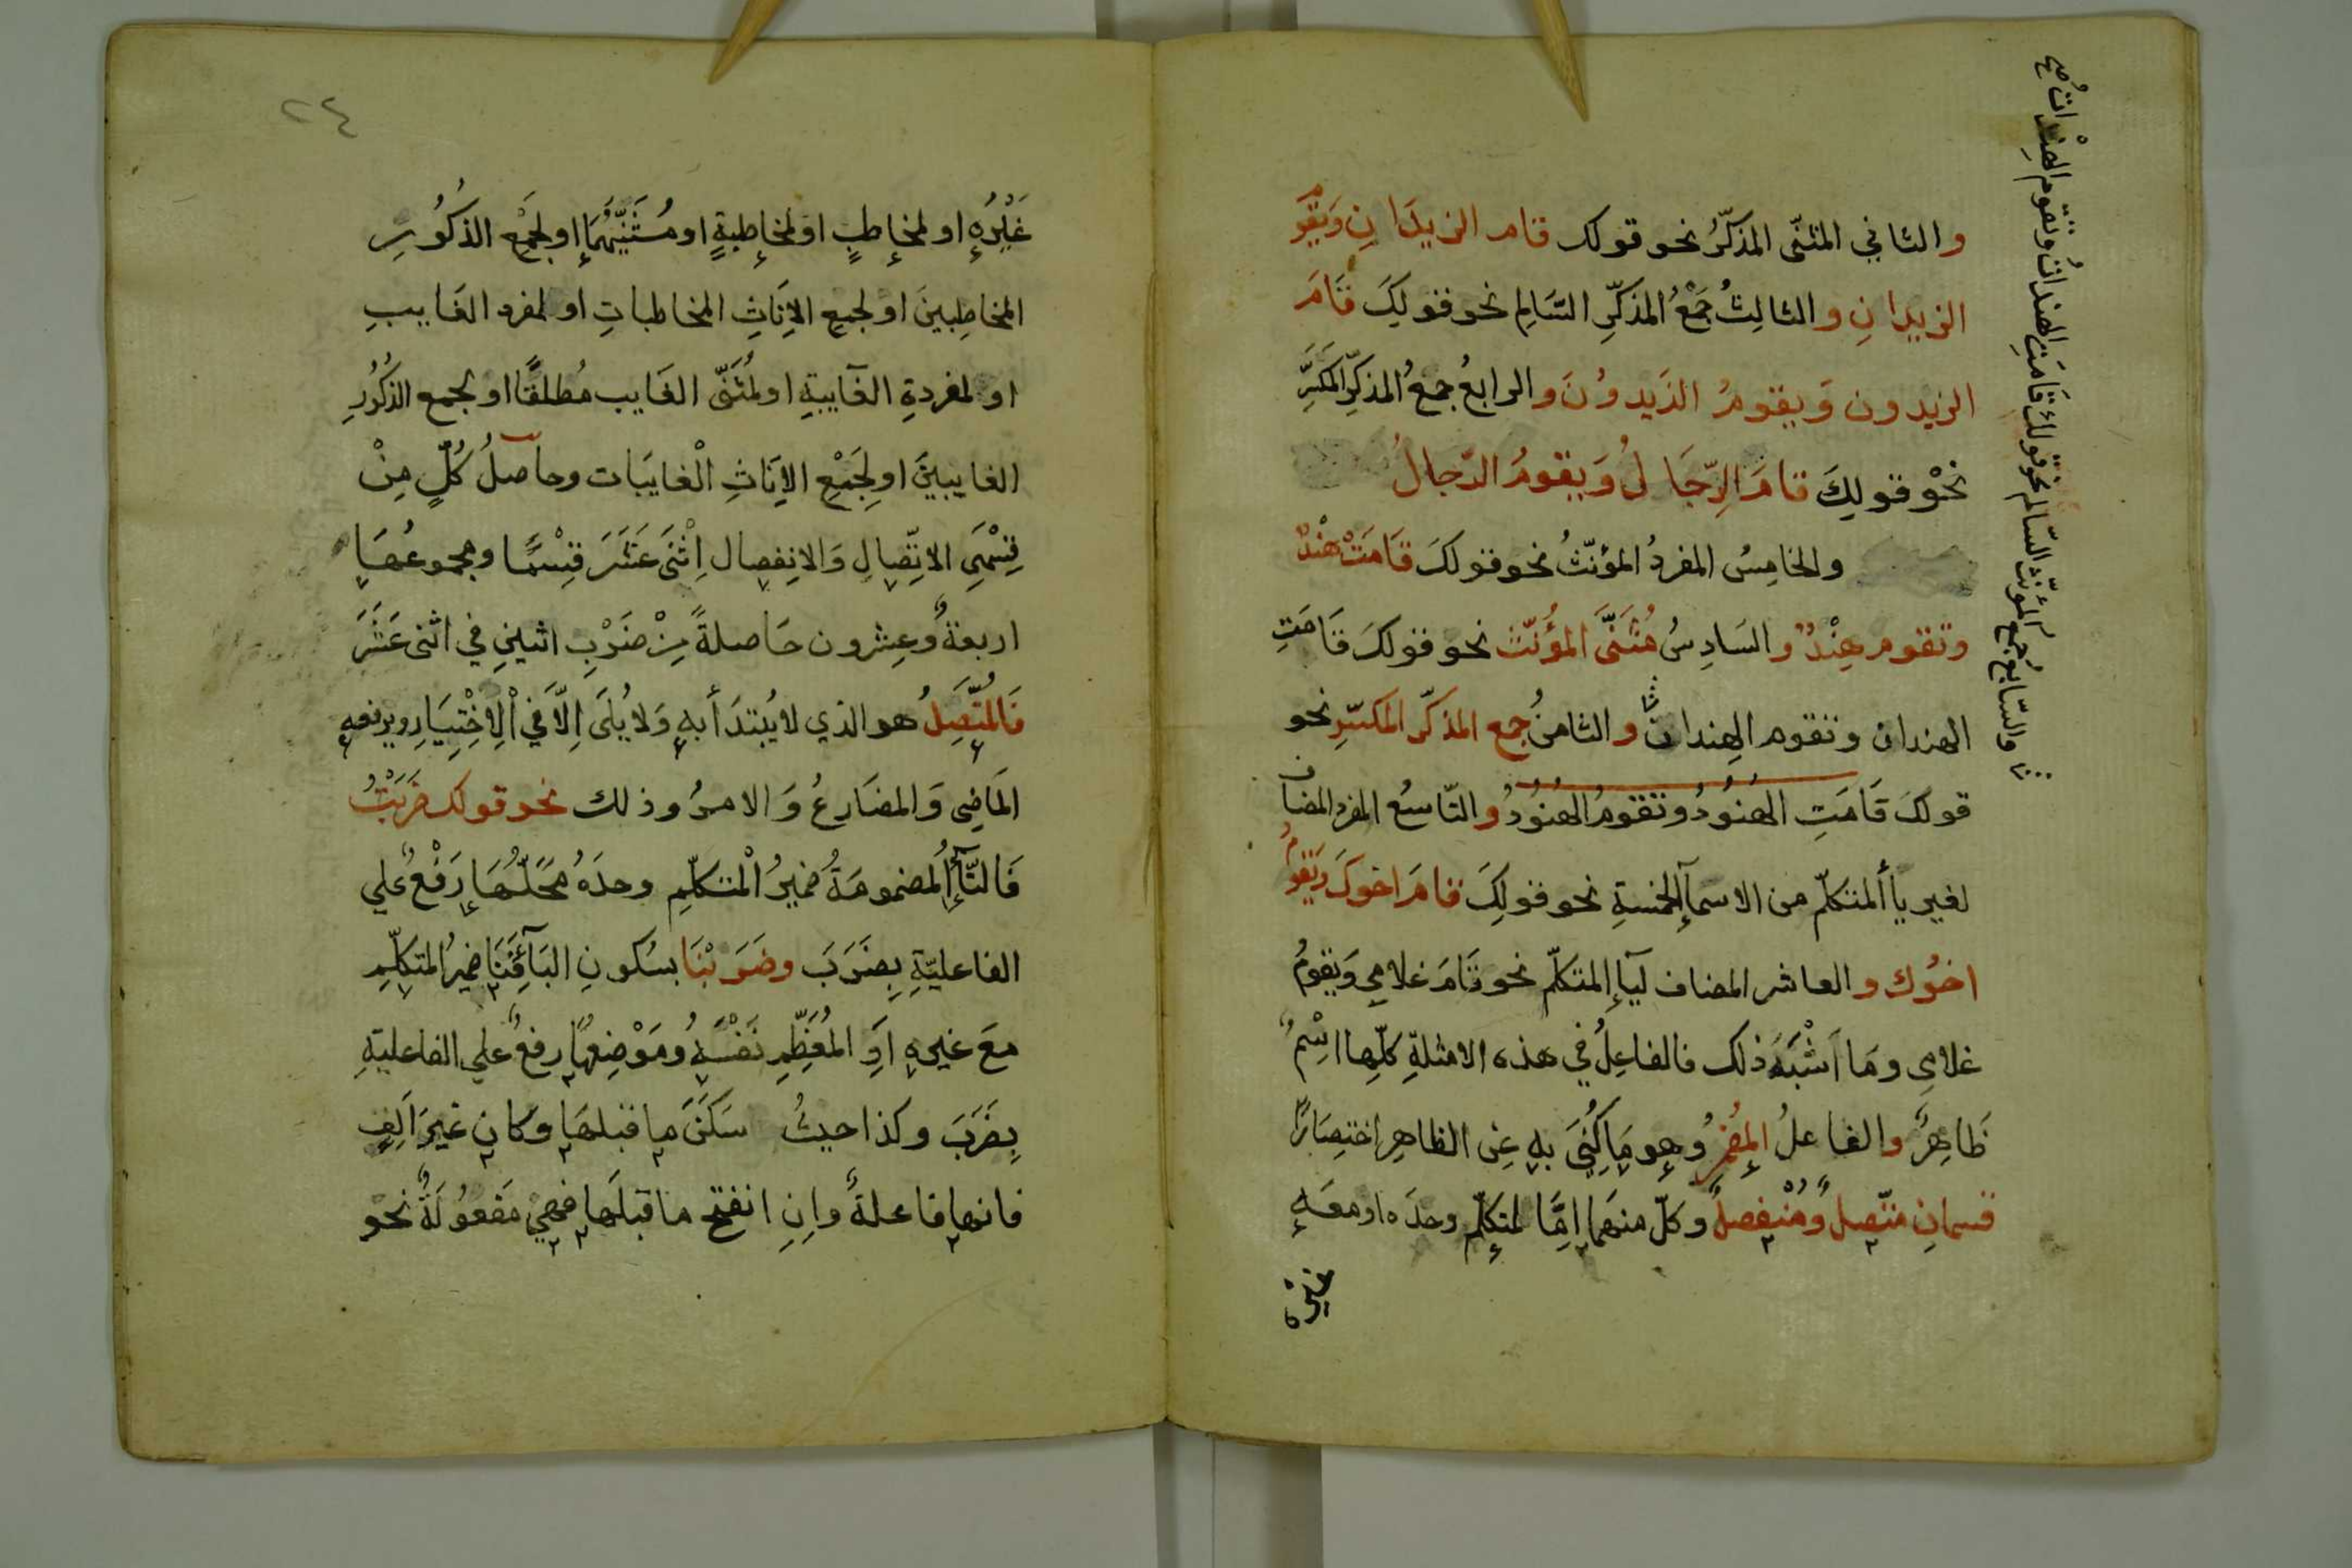 والثاني المثنّى المذكّرُ نحو قولك قام الزيدَانِ وَيَقومُ
الزيدانِ والثالِثُ جَمْعُ المذكّرِ السَّالِم نحو قولِكَ قَامَ
الزيدون وَيقومُ الزَيدُونَ والرابعُ جمعُ المذكّرِ المكسَّرِ
نحْو قولِكَ قامَ الرِّجَالُ وَيقومُ الرّجالُ
والخامِسُ المفردُ المؤنّثُ نحو قولكَ قَامَتْ هنْدٌ
وتقوم هِنْدٌ والسَادِسُ مُثَنَّى المؤُنّث نحو قولكَ قَامَتِ
الهندان وتقوم الهِندانِ والثامنُ جمع المذكّر المكسّرِ نحو
قولكَ قَامَتِ الهُنُودُ وتقومُ الهُنُودُ والتّاسعُ المفرد المضاف
لغير يأ ألمتكلّم من الاسمآ إلخمسةِ نحو قولِكَ قامَ اخوكَ ويَقومُ
اخُوك والعاشر المضاف ليآ إلمتكلّم نحو قَامَ غلامي وَيقومُ
غلامِي ومَا اَشْبَهَ ذلك فالفاعِلُ في هذه الامثلةِ كلّهِا اسْمٌ
ظَاهِرٌ والفاعلُ المضمرُ وهو مَا كُنِيَ بهِ عنِ الظاهِرِ اختصَارًا
قسمانِ متّصِلٌ ومُنْفصِلٌ وكلّ منهما اِمَّا لمتكلّم وحدَه او معَه
غيره
والسّابعُ جمع المؤنّث السّالم نحو قولك قَامَتِ الهنداتُ وتقوم الهِنْداتُ صح
٢٤
غَيْرُه او لمخاطبٍ او لمخاطبةٍ او مُثَنَّيهُمَا او لجَمْعِ الذكُورِ
المخاطِبينَ او لجمعِ الاِنَاثِ المخاطباتِ او لمفرد الغَايبِ
او لمفردةِ الغَآيبةِ او لمُثَنَّى الغَايب مُطلقًا او لجمع الذكُورِ
الغايبينَ او لِجَمْعِ الاِنَاثِ الْغايبَات وحاصلُ كُلٍّ مِنْ
قِسْمَيِ الاتِّصَالِ وَالانفِصال اِثْنَى عَشَرَ قِسْمًا ومجموعُهَا
اربعةٌ وعِشرون حَاصلةً مِنْ ضَرْبِ اثنينِ في اثنى عَشَرَ
فَالمُتَّصِلُ هو الذي لا يُبْتدَأ بهِ وَلا يُلَى اِلاَّ في اْلاِخْتِيَارِ ويرفعه
المَاضِى وَالمضَارعُ وَالامرُ وذلك نحو قولك ضَرَبْتُ
فَالتّآءُ اْلمضمومَةُ ضَميرُ اْلمتكلّمِ وحدَهُ محَلُّهَا رَفْعٌ علي
الفاعليّةِ بِضَرَبَ وضَرَبْنَا بسُكونِ البَآءِ فَنَا ضميرُ المتكلّمِ
معَ غيرهِ اَوِ المُعَظِّمِ نَفْسَهُ ومَوْضِعهَا رفعٌ علي الفاعليةِ
بِضَرَبَ وكذا حيثُ سَكَنَ ما قبلهَا وكان غيرَ اَلِفٍ
فانها فاعلةٌ واِنِ انفتحَ ما قبلَها فهيَ مَفعُولَةٌ نحْو